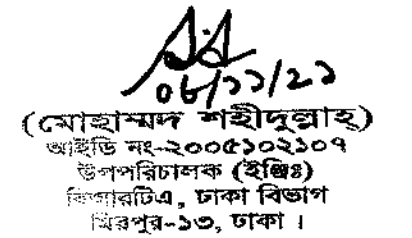 ০৮/১১/২১
(মোহাম্মদ শহীদুল্লাহ্)
আইডি নং-২০০৫১০২১০৭
উপপরিচালক (ইঞ্জিঃ)
বিআরটিএ, ঢাকা বিভাগ
মিরপুর-১৩, ঢাকা ।